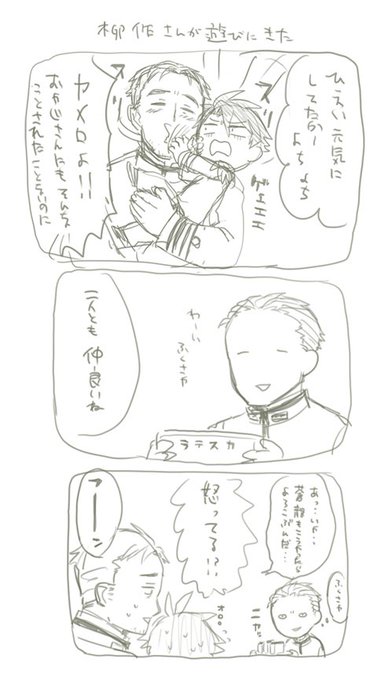 柳作さんが遊びにきた
ひえい元気に
してたかー
よちよち
スリ
スリ
ゲエエエ
ヤメロよ!!
おやじさんにもそんな
ことされたことないのに
わーい
ふくさや
カステラ
二人とも仲良いね
ふくさや
あっ…いや…
蒼龍もこうやったら
よろこぶんだ…
ニヤッ
怒ってる!?
オロ。。
アーン